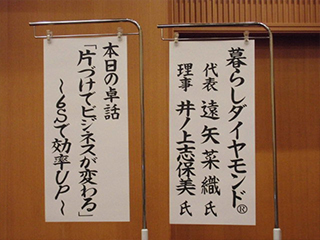 本日の卓話
「片づけでビジネスが変わる」
～6Sで効率UP～
暮らしダイヤモンド®
代表 遠矢菜織氏
理事 井ノ上志保美氏